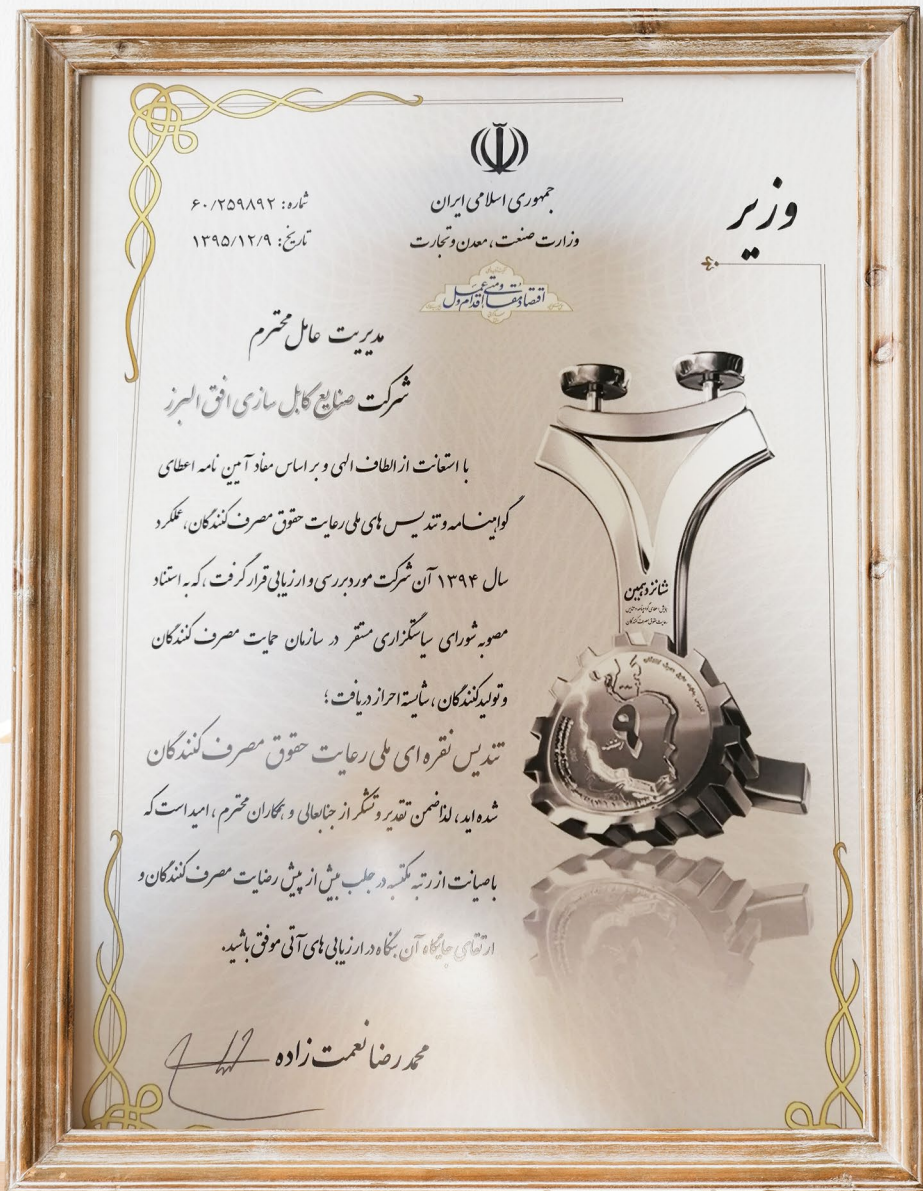 جمهوری اسلامی ایران
وزارت صنعت، معدن و تجارت
وزیر
شماره: ۶۰/۲۵۹۸۹۲
تاریخ: ۱۳۹۵/۱۲/۹
اقتصاد مقاومتی اقدام و عمل
مدیریت عامل محترم
شرکت صنایع کابل سازی افق البرز
با استعانت از الطاف الهی و بر اساس مفاد آیین نامه اعطای
گواهینامه و تندیس های ملی رعایت حقوق مصرف کنندگان، عملکرد
سال ۱۳۹۴ آن شرکت مورد بررسی و ارزیابی قرار گرفت، که به استناد
مصوبه شورای سیاستگزاری مستقر در سازمان حمایت مصرف کنندگان
و تولیدکنندگان، شایسته احراز دریافت؛
تندیس نقره ای ملی رعایت حقوق مصرف کنندگان
شده اید، لذا ضمن تقدیر و تشکر از جنابعالی و همکاران محترم، امید است که
با صیانت از رتبه مکتسبه در جلب بیش از پیش رضایت مصرف کنندگان و
ارتقای جایگاه آن بنگاه در ارزیابی های آتی موفق باشید.
محمدرضا نعمت زاده
شانزدهمین